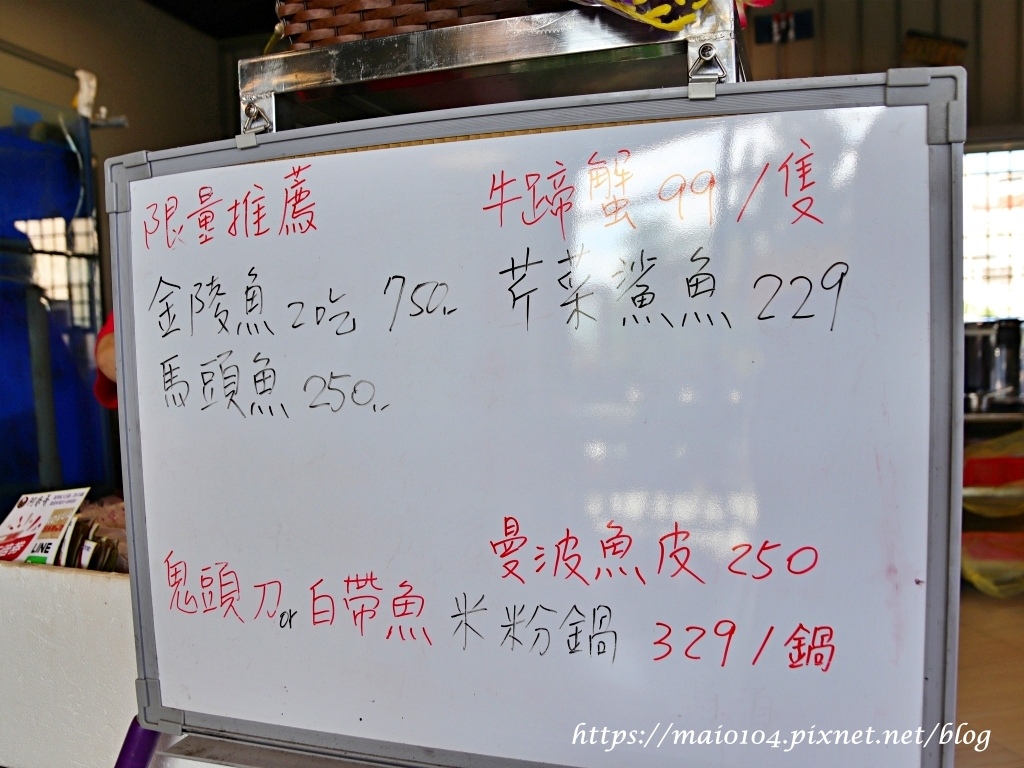 限量推薦
金陵魚 2吃 750.-
馬頭魚 250.-
牛蹄蟹 99/隻
芹菜鯊魚 229
曼波魚皮 250
鬼頭刀 or 白帶魚 米粉鍋 329/鍋
LINE
https://maio104.pixnet.net/blog